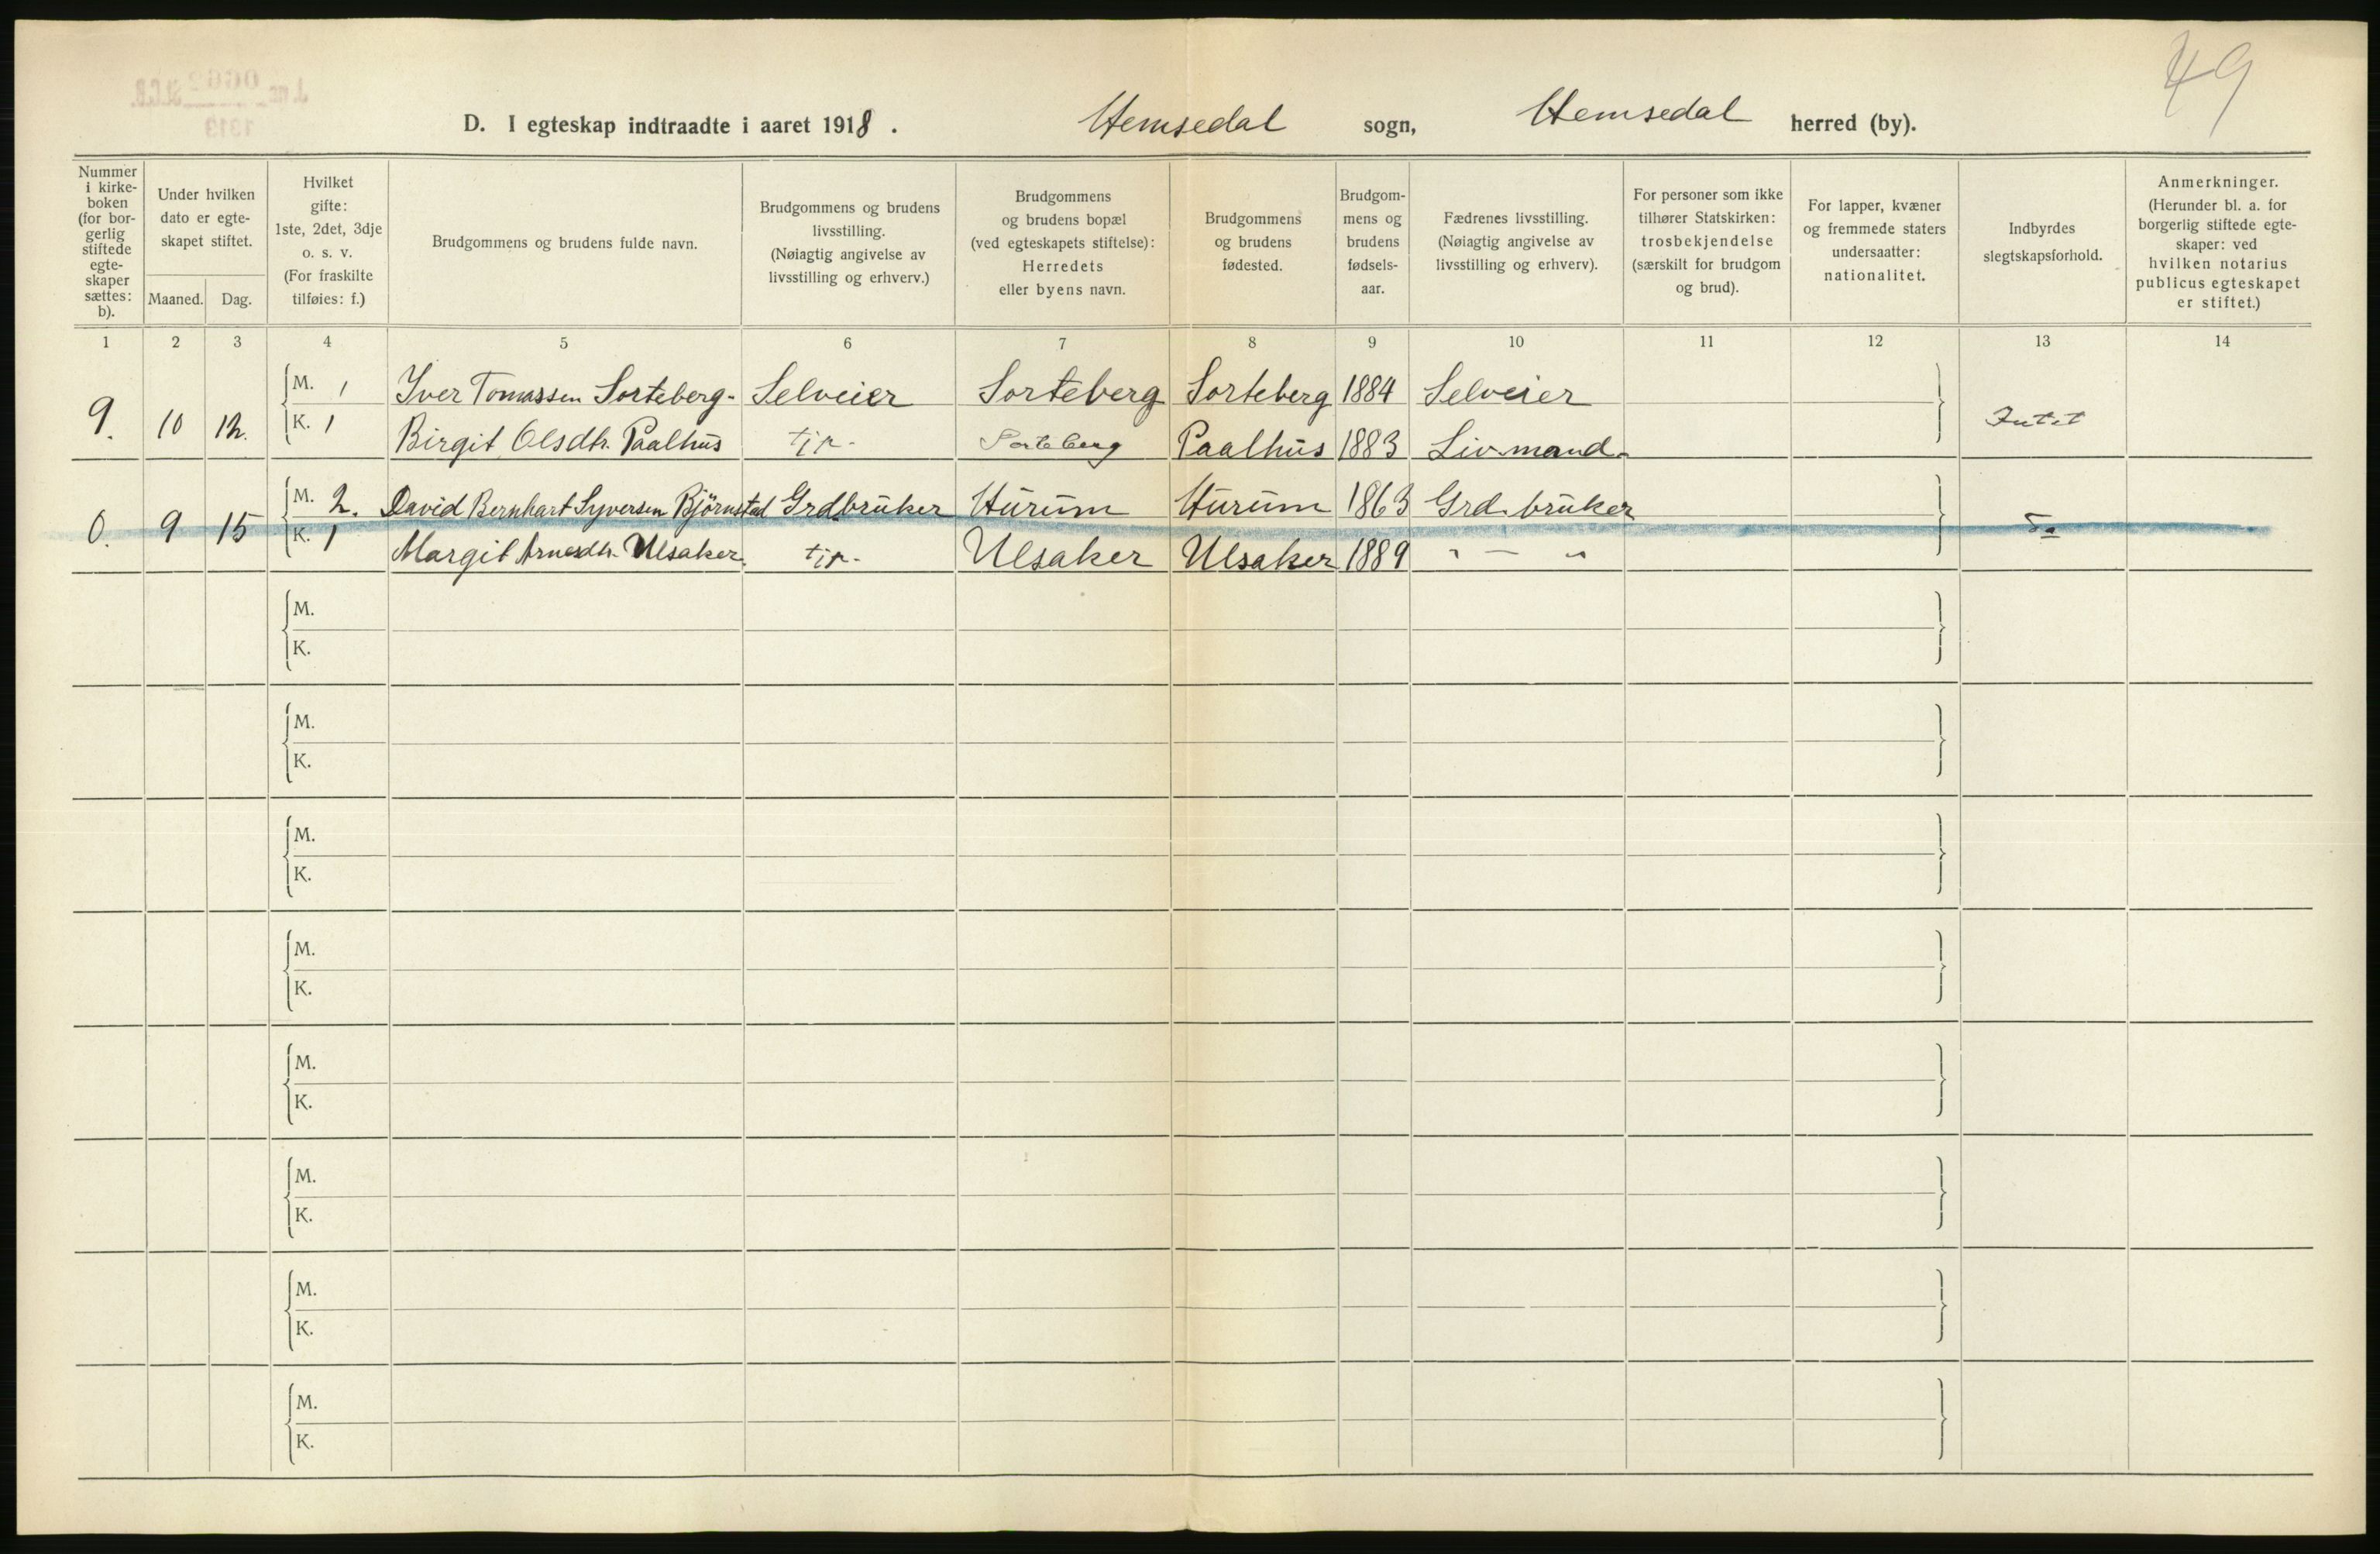 49
D. I egteskap indtraadte i aaret 1918. Hemsedal sogn, Hemsedal herred (by).
Nummer
i kirke-
boken
(for bor-
gerlig
stiftede
egte-
skaper
sættes:
b).
Under hvilken
dato er egte-
skapet stiftet.
Maaned. Dag.
Hvilket
gifte:
1ste, 2det, 3dje
o. s. v.
(For fraskilte
tilføies: f.)
Brudgommens og brudens fulde navn.
Brudgommens og brudens
livsstilling.
(Nøiagtig angivelse av
livsstilling og erhverv.)
Brudgommens
og brudens bopæl
(ved egteskapets stiftelse):
Herredets
eller byens navn.
Brudgommens
og brudens
fødested.
Brudgom-
mens og
brudens
fødsels-
aar.
Fædrenes livsstilling.
(Nøiagtig angivelse av
livsstilling og erhverv).
For personer som ikke
tilhører Statskirken:
trosbekjendelse
(særskilt for brudgom
og brud).
For lapper, kvæner
og fremmede staters
undersaatter:
nationalitet.
Indbyrdes
slegtskapsforhold.
Anmerkninger.
(Herunder bl. a. for
borgerlig stiftede egte-
skaper: ved
hvilken notarius
publicus egteskapet
er stiftet.)
1 2 3 4 5 6 7 8 9 10 11 12 13 14
M. 1 Iver Tomassen Sorteberg- Selveier Sorteberg Sorteberg 1884 Selveier
9. 10 12. K. 1 Birgit Olsdtr. Paalhus Sorteberg Paalhus 1883 Intet
M. 2. David Bernhart Syversen Bjørnstad Grdbruker Hurum Hurum 1863 Grd.bruker
0. 9 15 K. 1 Margit Arnesdtr. Ulsaker Ulsaker Ulsaker 1889 " — "
M.
K.
M.
K.
M.
K.
M.
K.
M.
K.
M.
K.
M.
K.
M.
K.